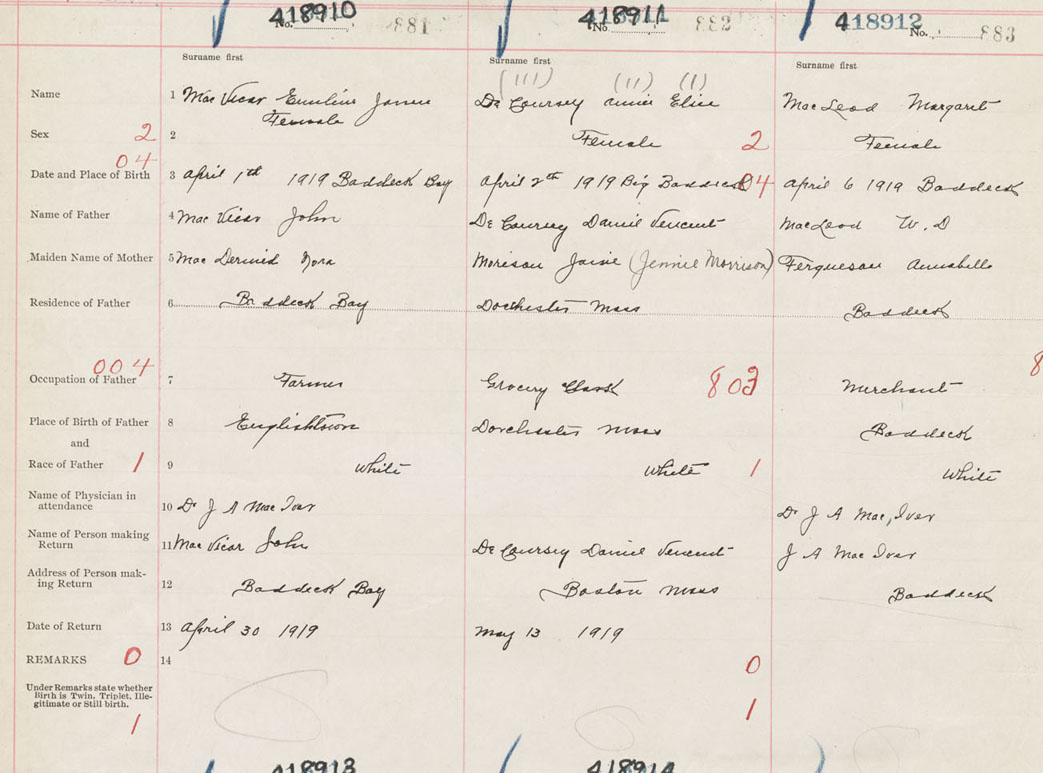 418910 418911 418912
No. 881 No. 882 No. 883
Surname first Surname first Surname first
(III) (II) (I)
Name 1 Mac Vicar Emeline Jane De Coursey Annie Elsie MacLeod Margaret
Sex 2 2 Female Female 2 Female
04
Date and Place of Birth 3 April 1th 1919 Baddeck Bay April 2th 1919 Big Baddeck 04 April 6 1919 Baddeck
Name of Father 4 Mac Vicar John De Coursey Daniel Vencent MacLeod W. D
Maiden Name of Mother 5 Mac Dermid Nora Morison Janie (Jennie Morrison) Fergueson Annabelle
Residence of Father 6 Baddeck Bay Dorchester Mass Baddeck
004
Occupation of Father 7 Farmer Grocery Clark 803 Merchant
8
Place of Birth of Father 8 Englishtown Dorchester Mass Baddeck
and
Race of Father 1 9 White White 1 White
Name of Physician in
attendance 10 Dr J A Mac Iver Dr J A Mac, Iver
Name of Person making
Return 11 Mac Vicar John De Coursey Daniel Vencent J A Mac Iver
Address of Person mak-
ing Return 12 Baddeck Bay Boston Mass Baddeck
Date of Return 13 April 30 1919 May 13 1919
REMARKS 0 14 0
Under Remarks state whether
Birth is Twin, Triplet, Ille-
gitimate or Still birth.
1 1
418913 418914